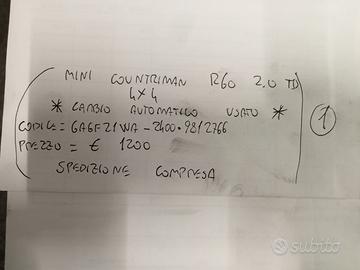 MINI COUNTRIMAN R60 2.0 TD
4x4
* CAMBIO AUTOMATICO USATO *
CODICE = GA6F21WA - 2400. 9812766
PREZZO = € 1200
SPEDIZIONE COMPRESA
1
subito